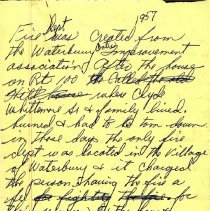 Dept 1957
Fire was created from
the Waterbury Center Improvement
association after the house
on Rt 100
where Clyde
Whittemore Sr & family lived.
burned & had to be torn down.
in those days the only fire
dept was located in the Village
of Waterbury & it charged
the person having the fire a
fee for